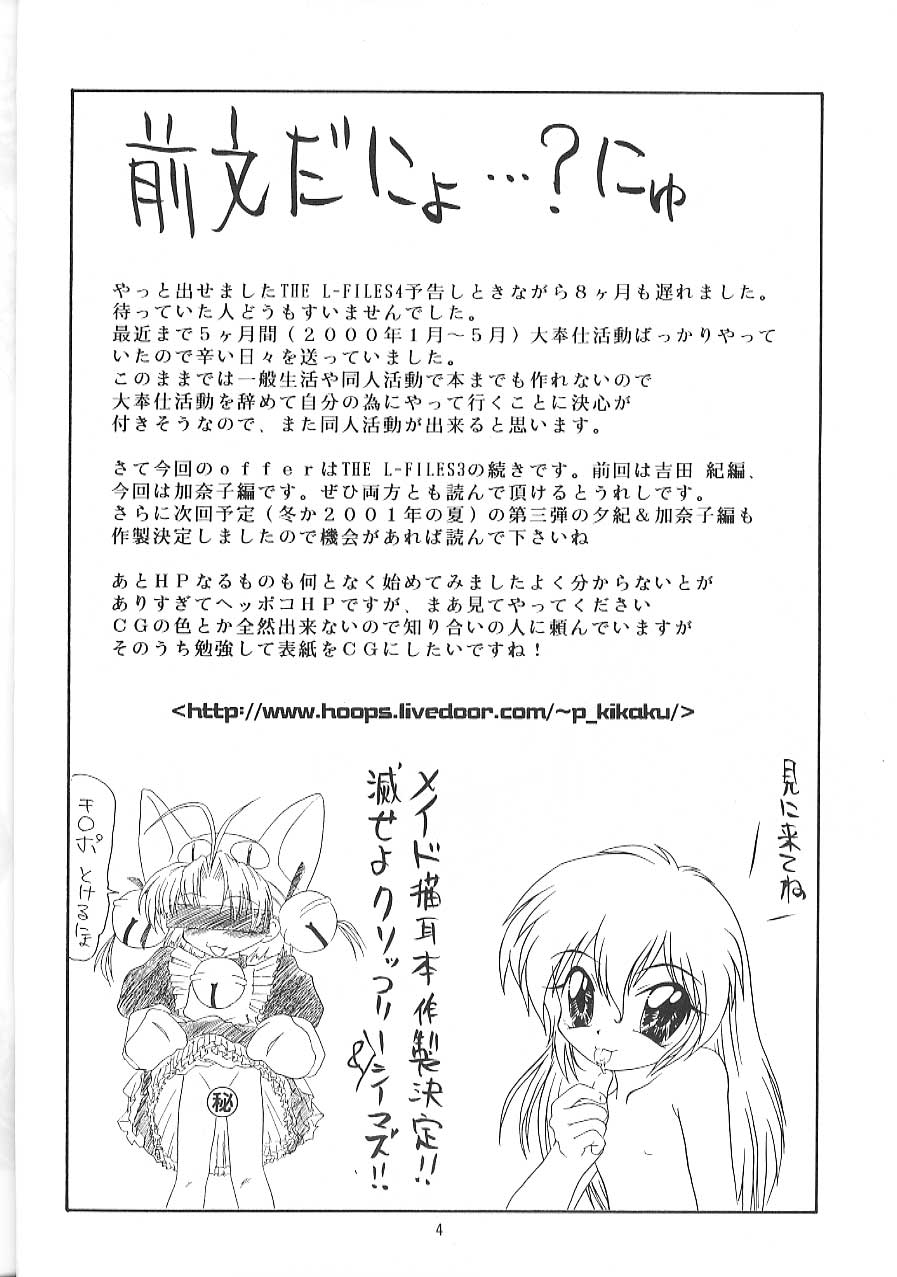 前文だにょ…?にゅ
やっと出せましたTHE L-FILES4予告しときながら8ヶ月も遅れました。
待っていた人どうもすいませんでした。
最近まで5ヶ月間(2000年1月~5月)大奉仕活動ばっかりやって
いたので辛い日々を送っていました。
このままでは一般生活や同人活動で本までも作れないので
大奉仕活動を辞めて自分の為にやって行くことに決心が
付きそうなので、また同人活動が出来ると思います。
さて今回のofferはTHE L-FILES3の続きです。前回は吉田 紀編、
今回は加奈子編です。ぜひ両方とも読んで頂けるとうれしです。
さらに次回予定(冬か2001年の夏)の第三弾の夕紀&加奈子編も
作製決定しましたので機会があれば読んで下さいね
あとHPなるものも何となく始めてみましたよく分からないとが
ありすぎてヘッポコHPですが、まあ見てやってください
CGの色とか全然出来ないので知り合いの人に頼んでいますが
そのうち勉強して表紙をCGにしたいですね!
<http://www.hoops.livedoor.com/~p_kikaku/>
見に来てね
メイド猫耳本作製決定!!
滅せよクリッコリーニイマズ!!
キ○ポ
とけるにょ
秘
4